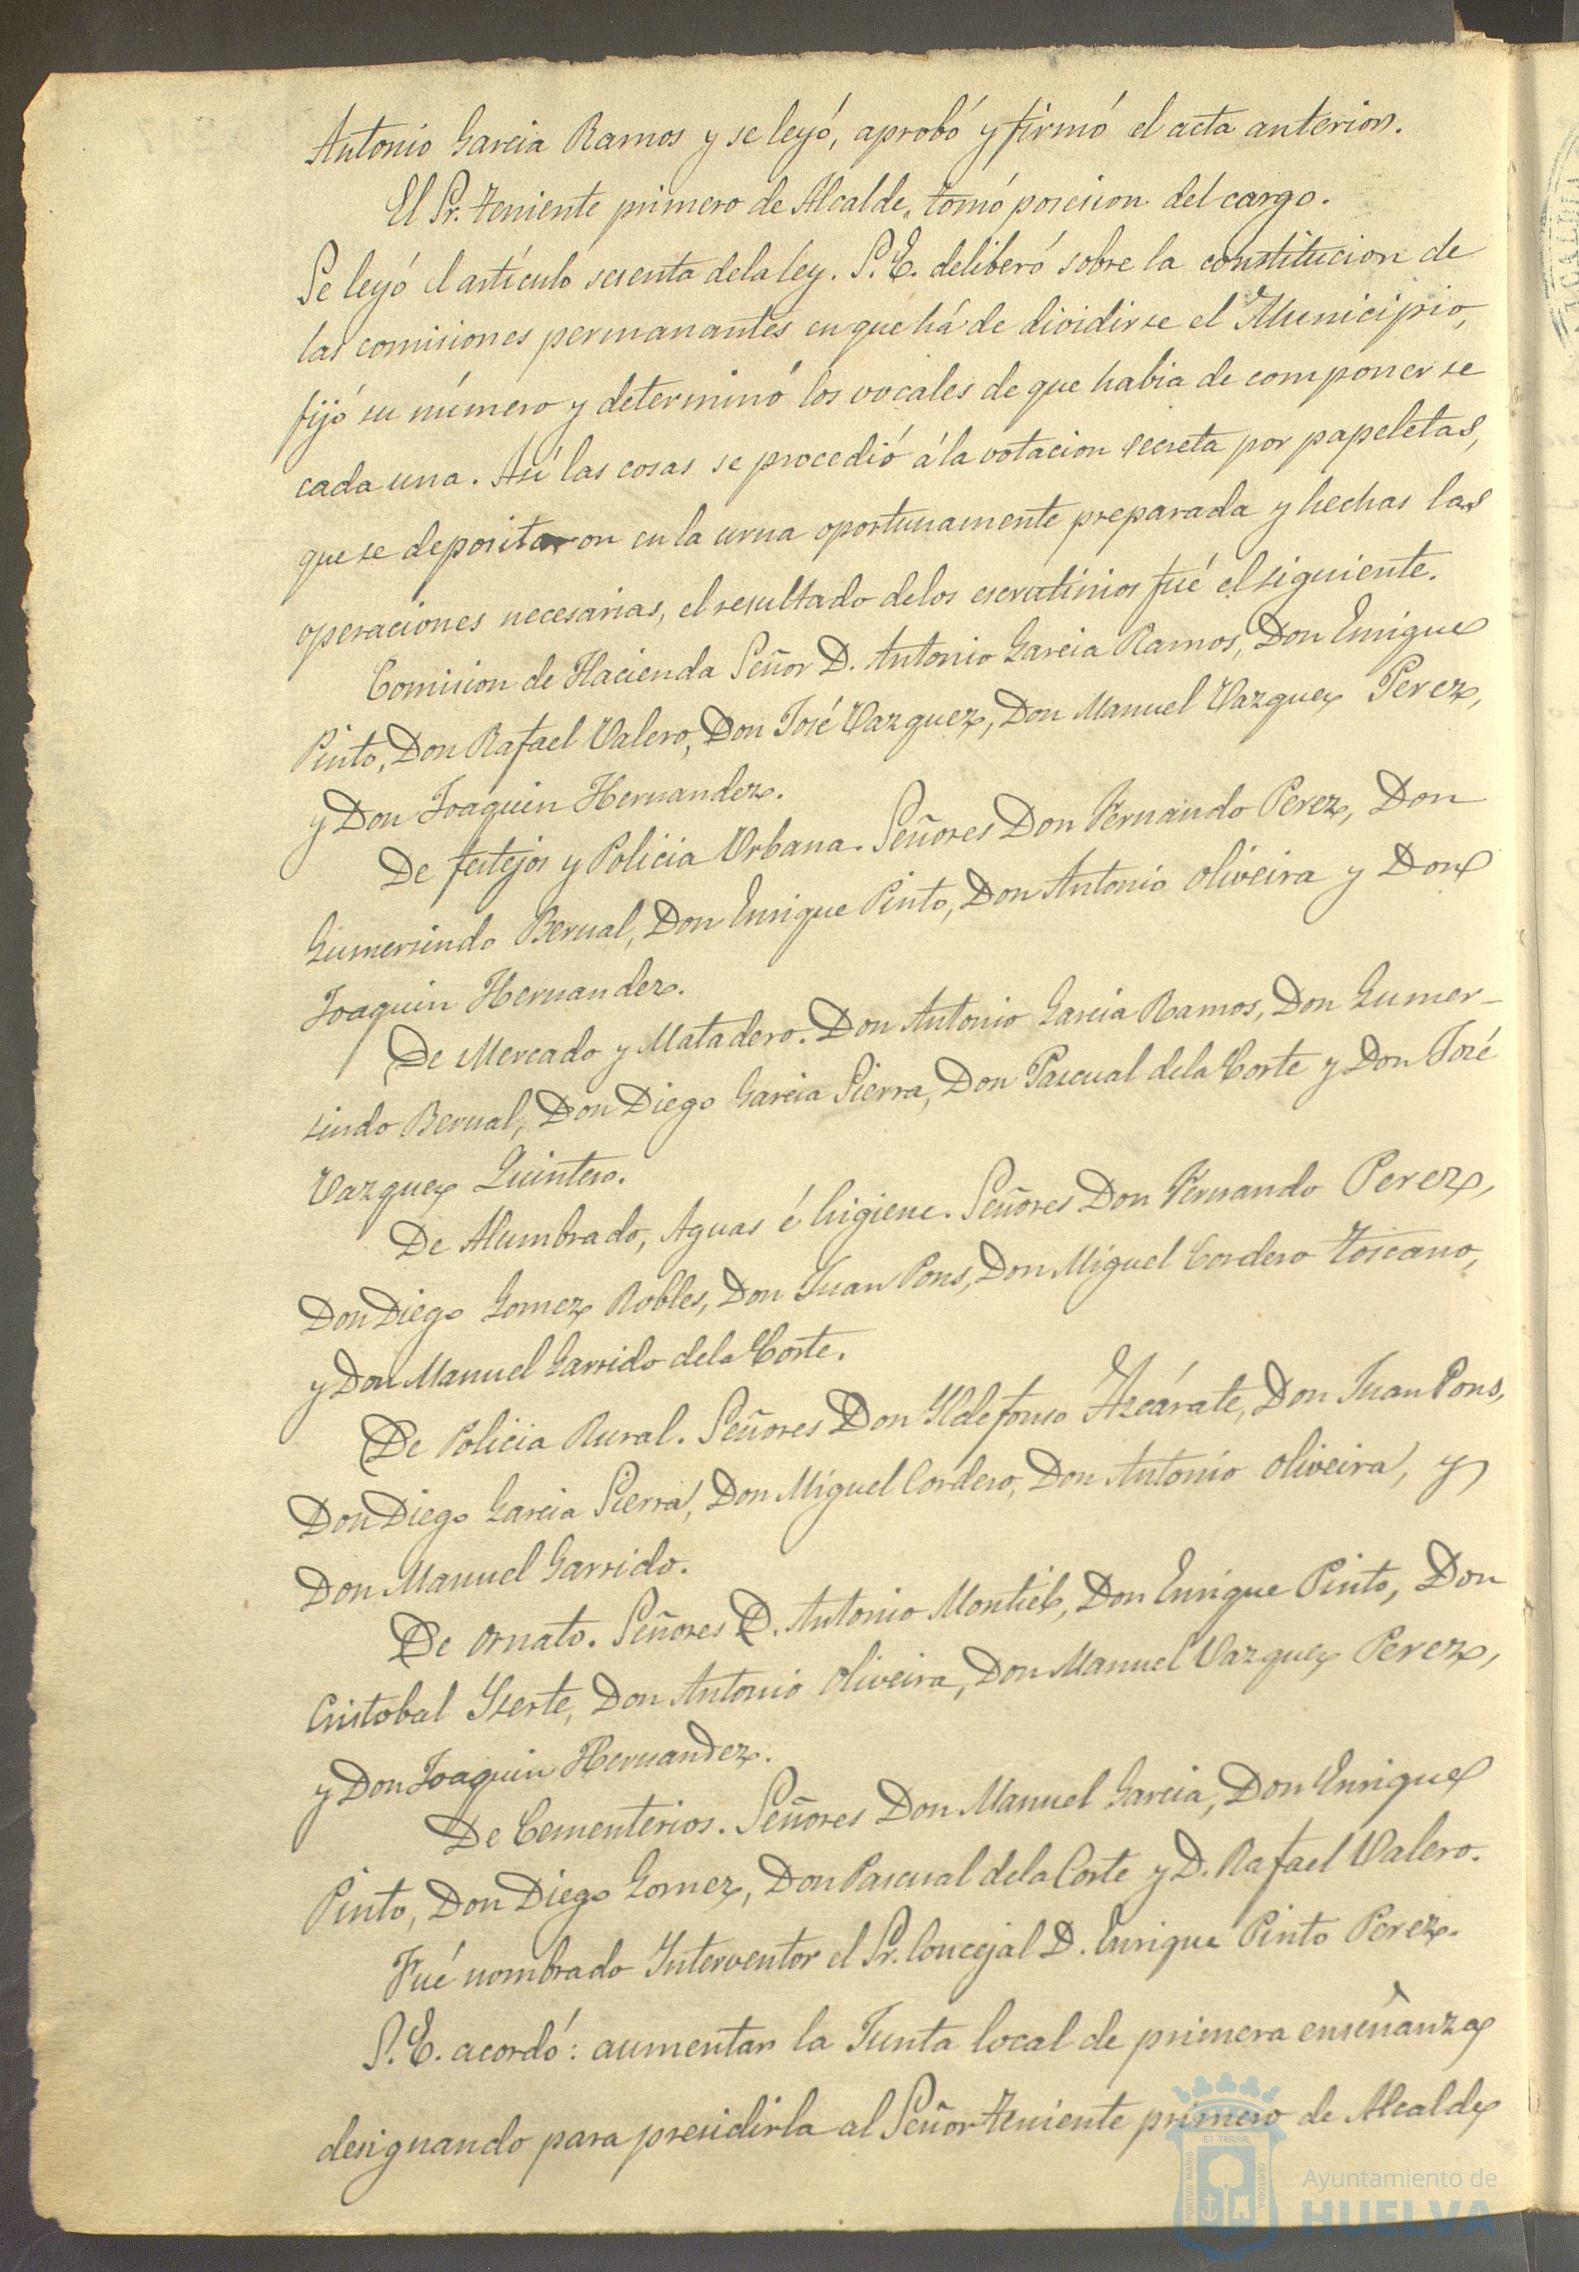 Antonio Garcia Ramos y se leyó, aprobó y firmó el acta anterior.
El Sr. Teniente primero de Alcalde, tomó posesion del cargo.
Se leyó el artículo sesenta dela ley. S.E. deliberó sobre la constitucion de
las comisiones permanantes en que há de dividirse el Municipio,
fijó su número y determinó los vocales de que habia de componerse
cada una. Así las cosas se procedió á la votacion secreta por papeletas,
que se depositaron en la urna oportunamente preparada y hechas las
operaciones necesarias, el resultado delos escrutinios fué el siguiente.
Comision de Hacienda Señor D. Antonio Garcia Ramos, Don Enrique
Pinto, Don Rafael Valero, Don José Vazquez, Don Manuel Vazquez Perez,
y Don Joaquin Hernandez.
De festejos y Policia Urbana. Señores Don Fernando Perez, Don
Gumersindo Bernal, Don Enrique Pinto, Don Antonio Oliveira y Don
Joaquin Hernandez.
De Mercado y Matadero. Don Antonio Garcia Ramos, Don Gumer-
sindo Bernal, Don Diego Garcia Sierra, Don Pascual dela Corte y Don José
Vazquez Quintero.
De Alumbrado, Aguas é higiene. Señores Don Fernando Perez,
Don Diego Gomez Robles, Don Juan Pons, Don Miguel Cordero Toscano,
y Don Manuel Garrido dela Corte.
De Policia Rural. Señores Don Yldefonso Azcárate, Don Juan Pons,
Don Diego Garcia Sierra, Don Miguel Cordero, Don Antonio Oliveira, y
Don Manuel Garrido.
De Ornato. Señores D. Antonio Montiel, Don Enrique Pinto, Don
Cristobal Yserte, Don Antonio Oliveira, Don Manuel Vazquez Perez,
y Don Joaquin Hernandez.
De Cementerios. Señores Don Manuel Garcia, Don Enrique
Pinto, Don Diego Gomez, Don Pascual dela Corte y D. Rafael Valero.
Fué nombrado Interventor el Sr. Concejal D. Enrique Pinto Perez.
S.E. acordó: aumentar la Junta local de primera enseñanza
designando para presidirla al Señor Teniente primero de Alcalde
PORTUS MARIS
ET TERRÆ
CUSTODIA
Ayuntamiento de
HUELVA